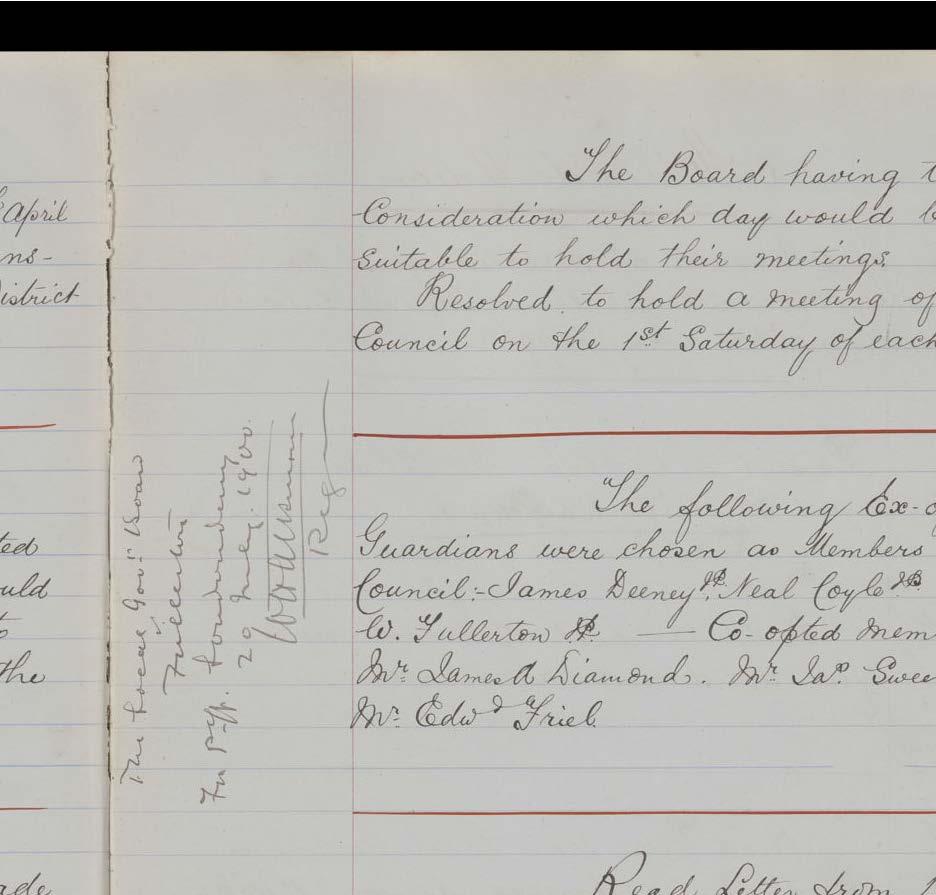 April
ns-
istrict
ted
uld
to
the
ade
The Local Gov. Board
Fullerton
Londonderry
29 May. 1900.
Reg
The Board having t
Consideration which day would b
suitable to hold their meetings.
Resolved to hold a meeting of
Council on the 1st Saturday of each
The following Ex-o
Guardians were chosen as Members
Council:- James Deeney J.P. Neal Coyle J.P.
W. Fullerton J.P. — Co-opted Mem
Mr. James A Diamond. Mr. Jas. Swee
Mr. Edwd Friel
Read Letter from